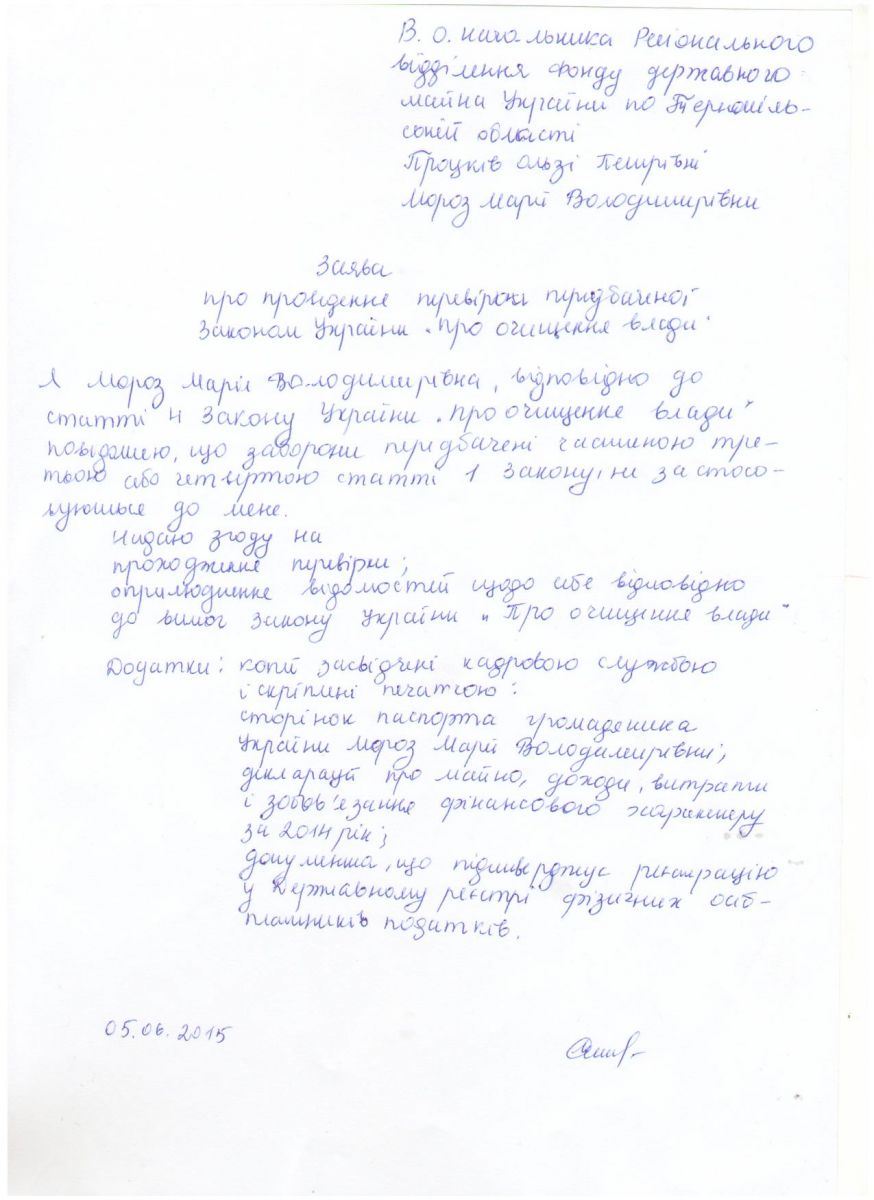 В. о. начальника Регіонального
відділення Фонду державного
майна України по Тернопіль-
ській області
Процків Ользі Петрівні
Мороз Марії Володимирівни
Заява
про проведення перевірки передбаченої
Законом України „Про очищення влади"
Я Мороз Марія Володимирівна, відповідно до
статті 4 Закону України „Про очищення влади"
повідомляю, що заборони передбачені частиною тре-
тьою або четвертою статті 1 Закону, не застосо-
вуються до мене.
Надаю згоду на
проходження перевірки;
оприлюднення відомостей щодо себе відповідно
до вимог Закону України „Про очищення влади"
Додатки: копії засвідчені кадровою службою
і скріплені печаткою:
сторінок паспорта громадянина
України Мороз Марії Володимирівни;
декларації про майно, доходи, витрати
і зобов'язання фінансового характеру
за 2014 рік;
документа, що підтверджує реєстрацію
у Державному реєстрі фізичних осіб-
платників податків.
05.06.2015